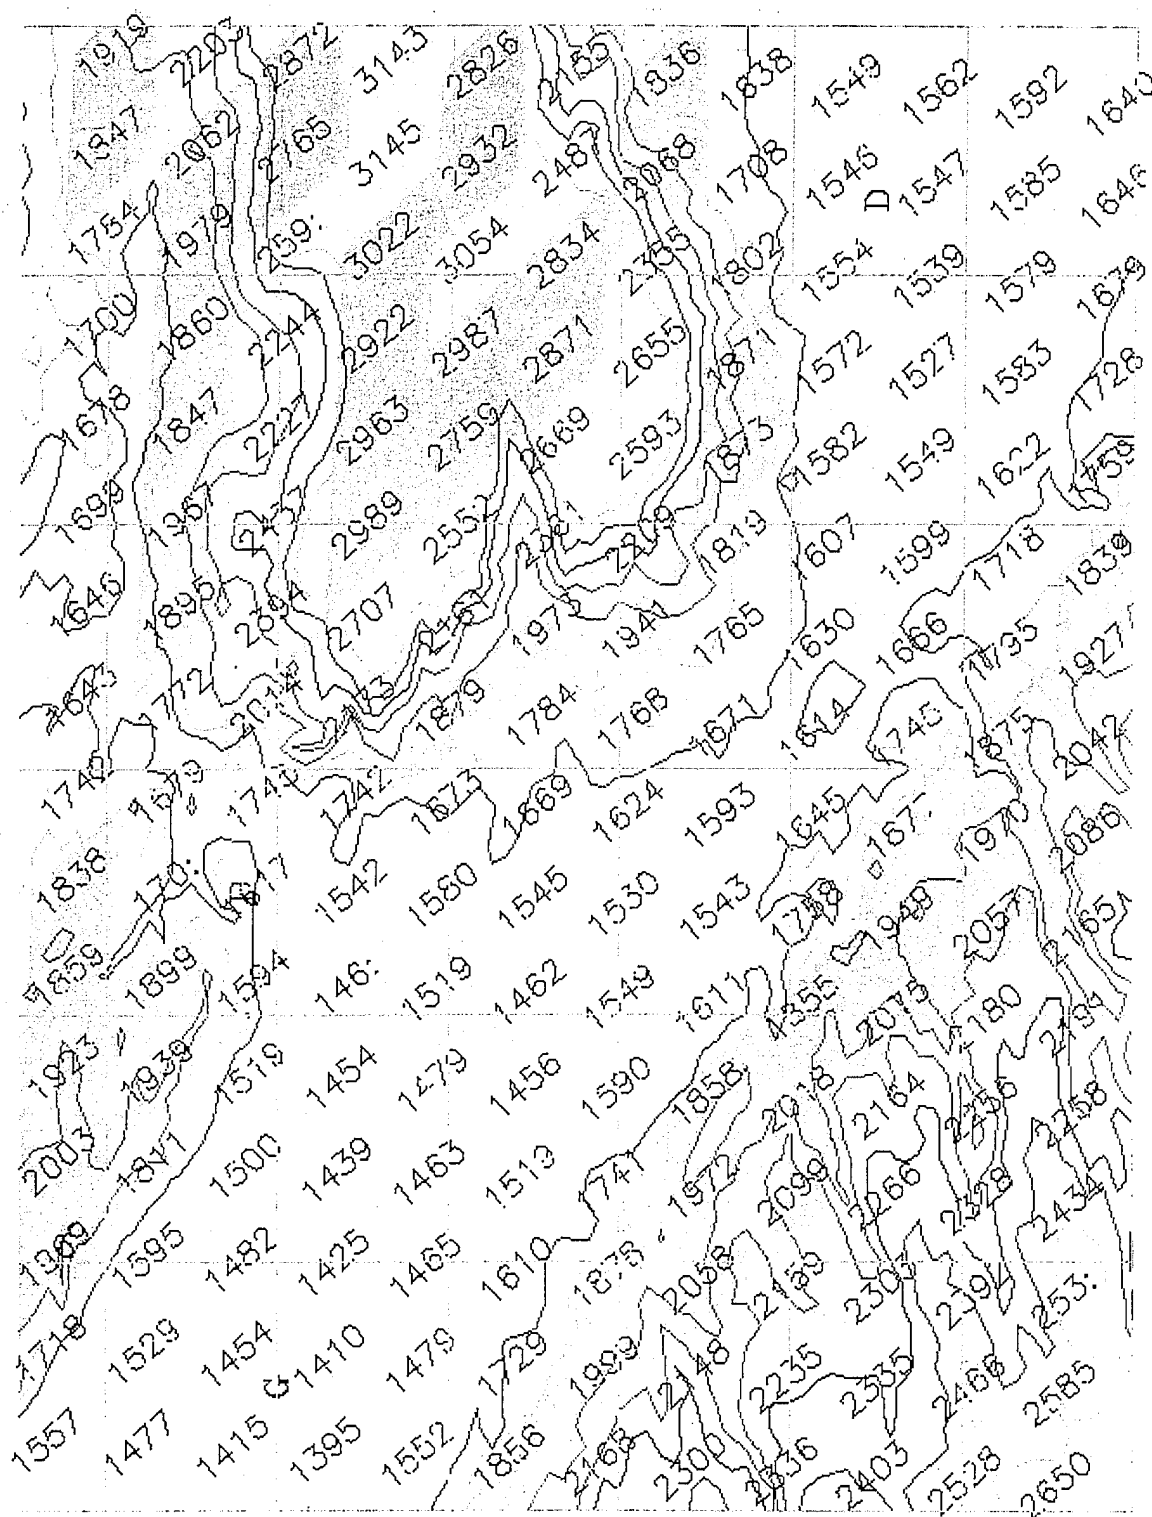 1919 2203 2872 3143 2826 2155 1836 1638 1549 1562 1592 1640
1847 2062 2765 3145 2932 2487 2068 1708 1546 1547 1585 1646
D
1754 1979 3022 3054 2834 2355 1802 1554 1539 1579 1679
1700 1860 2244 2922 2987 2871 2655 1871 1572 1527 1583 1728
1678 1847 2227 2963 2759 2669 2593 1582 1549 1622 1759
1699 1967 2437 2989 2552 1819 1599 1718 1839
1646 1895 2394 2707 2167 1973 1941 1765 1630 1666 1795 1927
1643 1772 2014 1879 1784 1768 1671 1614 1745 1875 2042
1742 1679 1743 1742 1673 1669 1624 1593 1645 1970 2086
1838 1617 1542 1580 1545 1530 1543 1758 1948 2057 2165
1859 1899 1594 1519 1462 1549 1611 2075 2180 2191
1923 1939 1519 1454 1479 1456 1590 1858 2018 2164 2256 2258
2003 1811 1500 1439 1463 1519 1741 1972 2099 2266 2328 2434
1969 1595 1482 1425 1465 1610 1878 2058 2159 2303 2394
1718 1529 1454 1410 1479 1729 1999 2148 2235 2335 2466 2585
G
1557 1477 1415 1395 1552 1856 2165 2300 2336 2403 2528 2650